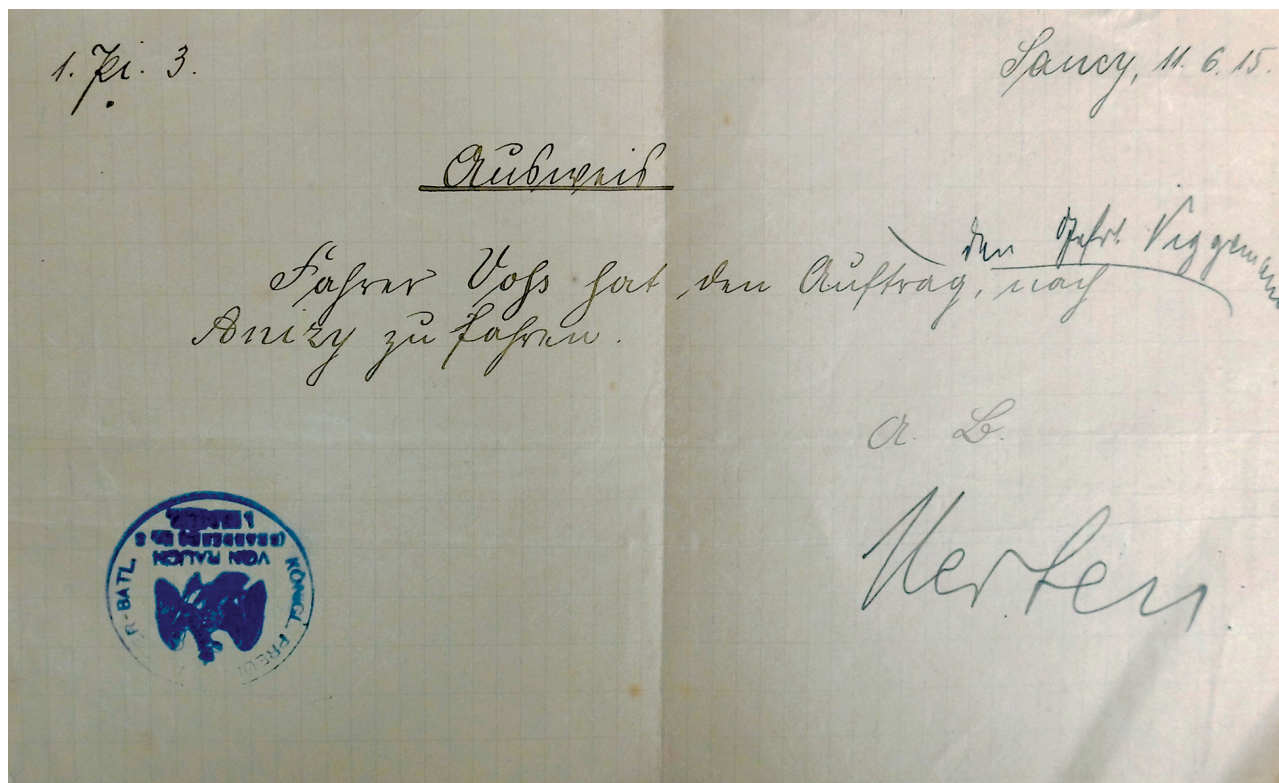 1. Pi. 3.
Sancy, 11. 6. 15.
Ausweis
den
Fahrer Voss hat den Auftrag, nach
Anizy zu fahren.
a. B.
Merten
KÖNIGL. PREU
R-BATL.
VON RAUCH